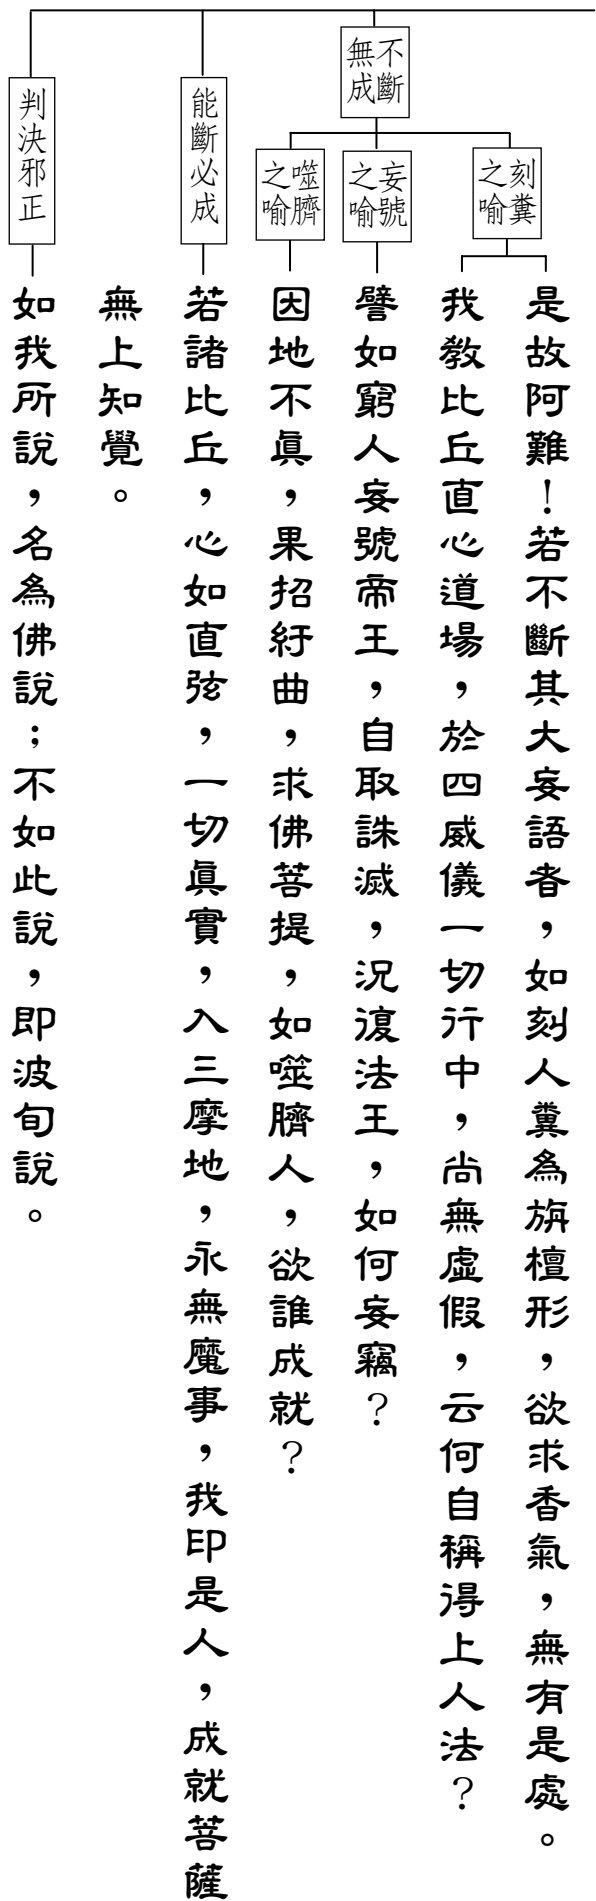 不斷
無成
刻糞
之喻
是故阿難！若不斷其大妄語者，如刻人糞為旃檀形，欲求香氣，無有是處。
我教比丘直心道場，於四威儀一切行中，尚無虛假，云何自稱得上人法？
妄號
之喻
譬如窮人妄號帝王，自取誅滅，況復法王，如何妄竊？
噬臍
之喻
因地不真，果招紆曲，求佛菩提，如噬臍人，欲誰成就？
能斷必成
若諸比丘，心如直弦，一切真實，入三摩地，永無魔事，我印是人，成就菩薩
無上知覺。
判決邪正
如我所說，名為佛說；不如此說，即波旬說。